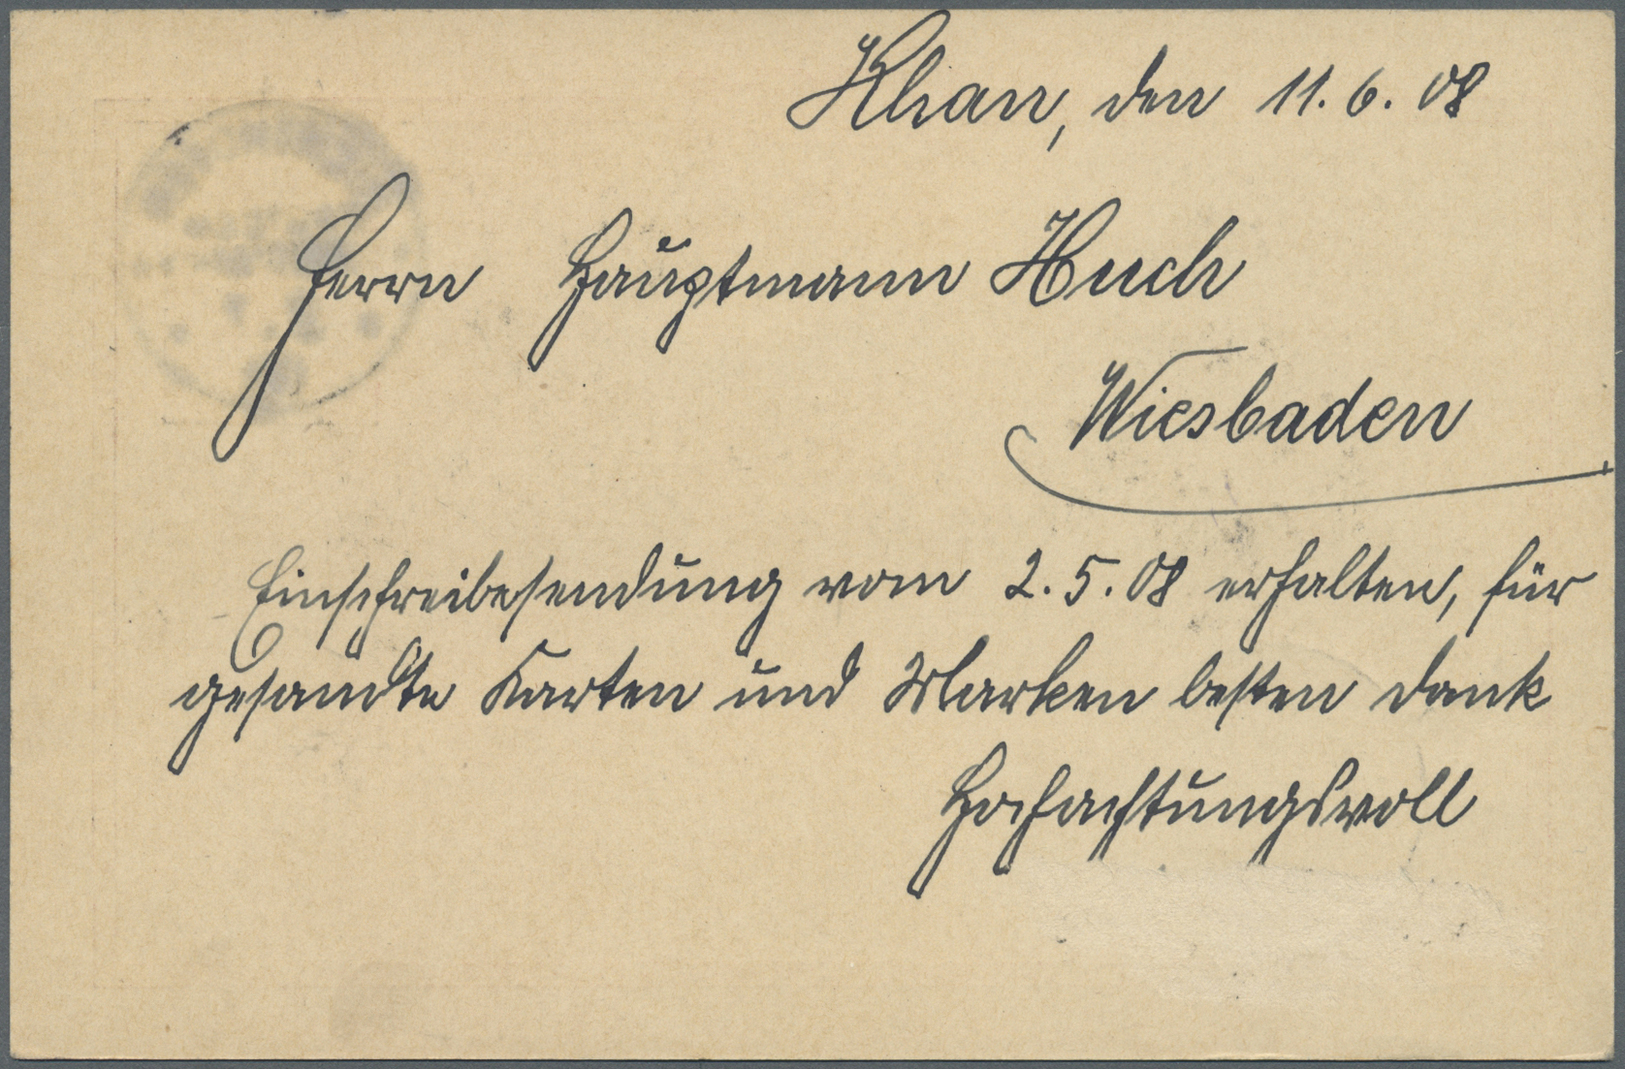 Khan, den 11. 6. 08
Herrn Hauptmann Huch
Wiesbaden
Einschreibesendung vom 2. 5. 08 erhalten, für
gesandte Karten und Marken besten Dank
Hochachtungsvoll